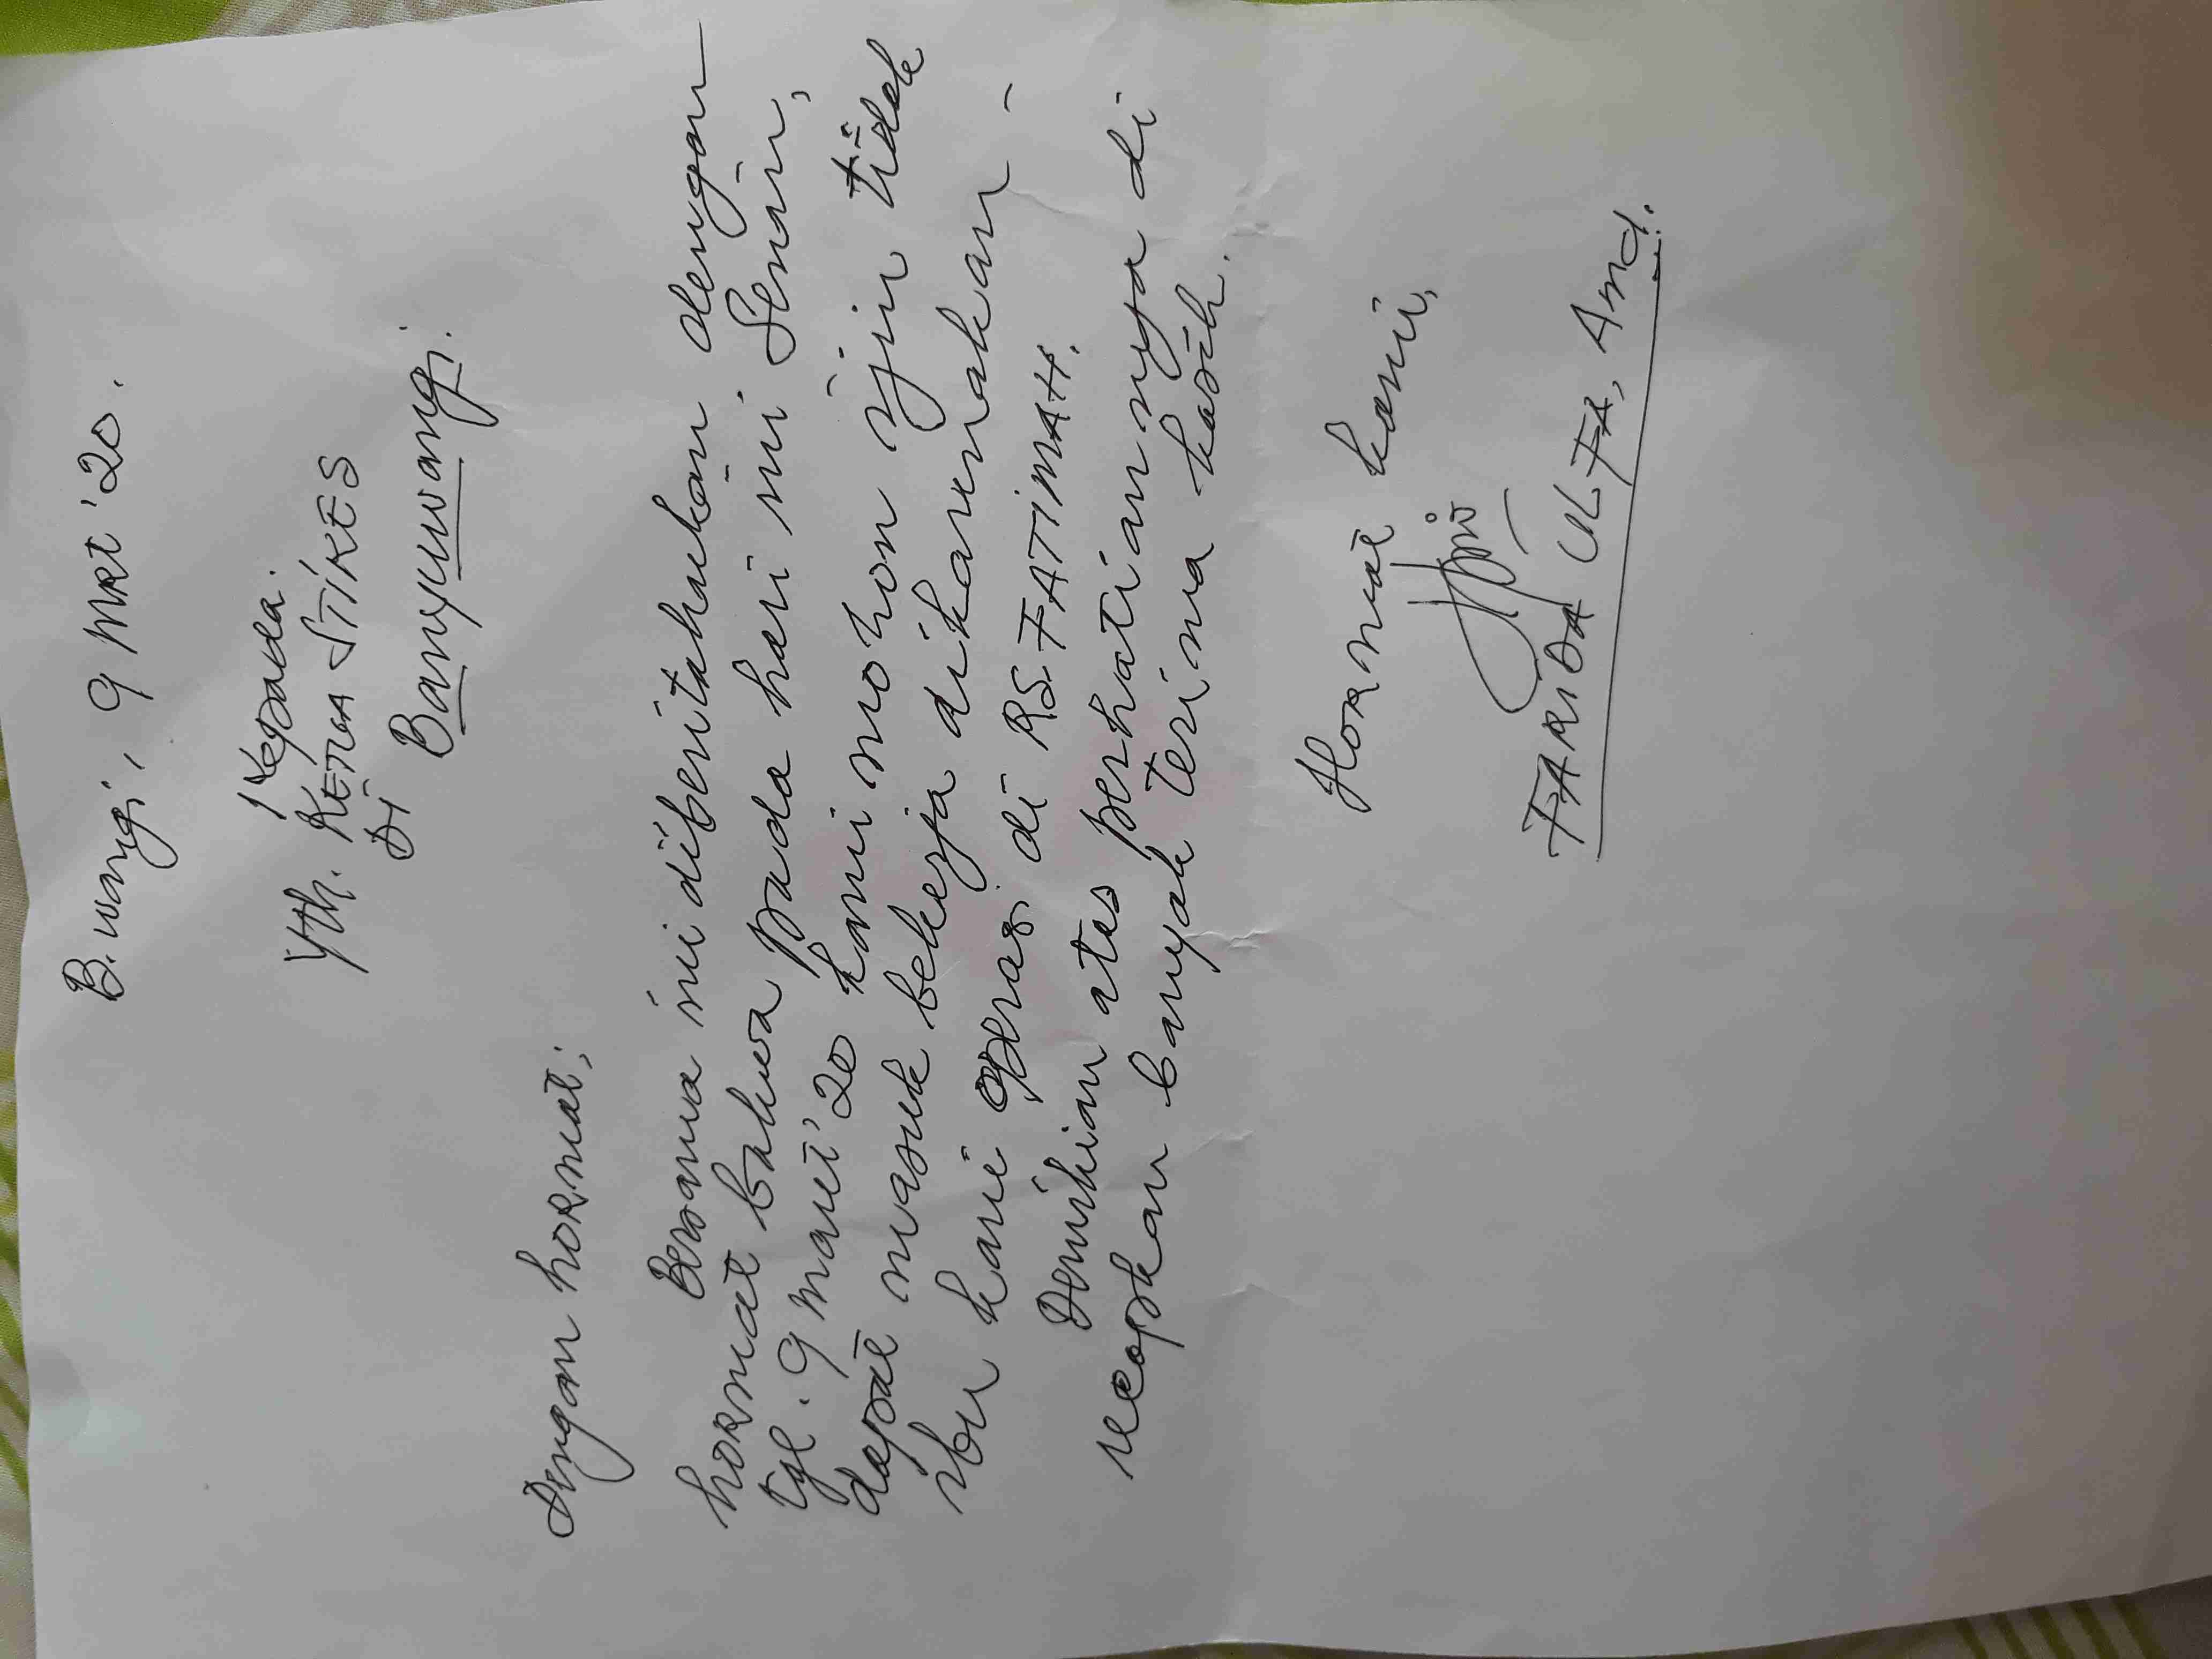 B.wangi, 9 Mrt '20.
Kepada
Yth. KETUA STIKES
Di
Banyuwangi.
Dengan hormat;
Bersama ini diberitahukan dengan
hormat bahwa pada hari ini Senin,
tgl. 9 maret '20 kami mohon ijin tidak
dapat masuk bekerja dikarenakan -
ibu kami operasi di RS FATIMAH.
Demikian atas perhatiannya di
ucapkan banyak terima kasih.
Hormat kami,
FARIDA ULFA, Amd.